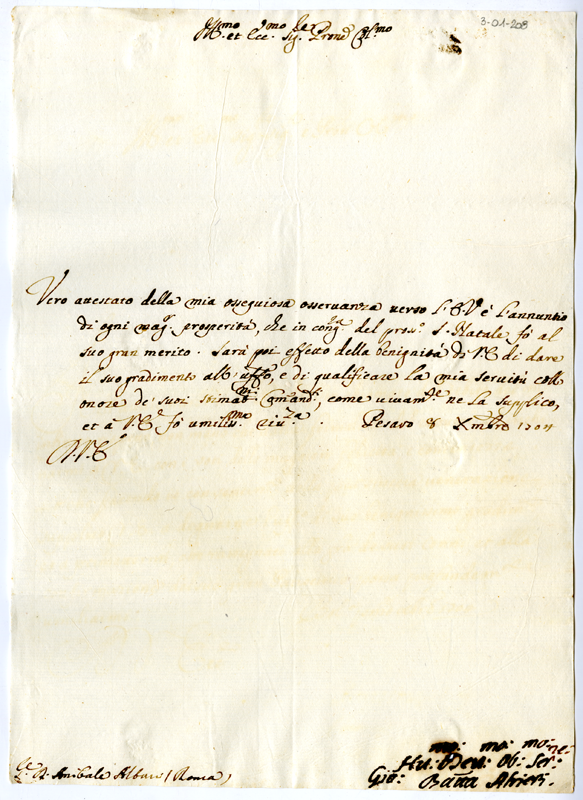 3-01-208
Ill.mo et Ecc.mo Sig.re Pron Col.mo
Vero attestato della mia ossequiosa osservanza verso l'E.V. è l'annuntio
di ogni mag.r prosperità, che in cong.ra del pross.o S. Natale fò al
suo gran merito. Sarà poi effetto della benignità di V.E. di dare
il suo gradimento all'uffo, e di qualificare la mia servitù coll
onore de suoi stimat.mi Comandi, come vivam.te ne la supplico,
et à V.E. fò umiliss.ma riv.za. Pesaro 8 Xmbre 1704
D.V.E.
D. Anibale Albani (Roma)
mo: mo: mo: ne:
Hu: Dev: Ob: Ser:
Gio: Batta Alvieri.